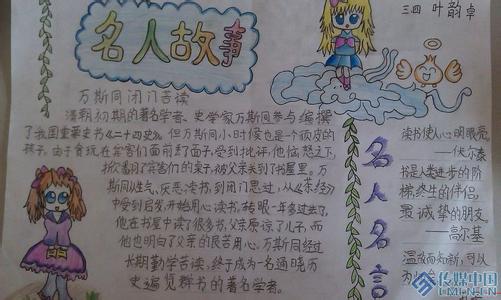 三四 叶韵卓
名人故事
万斯同闭门苦读
清朝初期的著名学者、史学家万斯同参与编撰
了我国重要史书《二十四史》但万斯同小时候也是一个顽皮的
孩子。由于贪玩在宾客们面前丢了面子,受到批评,他恼怒之下,
掀翻了宾客们的桌子,被父亲关到了书屋里。万
斯同从生气、厌恶读书,到闭门思过,从《茶经》
中受到启发,开始用心读书。转眼一年多过去了,
他在书屋中读了很多书,父亲原谅了儿子,而
他也明白了父亲的良苦用心。万斯同经过
长期勤学苦读,终于成为一名通晓历
史遍览群书的著名学者。
名人名言
读书使人心明眼亮
——伏尔泰
书是人类进步的阶
梯,终生的伴侣,
最诚挚的朋友
——高尔基
温故而知新,可以
传媒中国
CMEN.CN